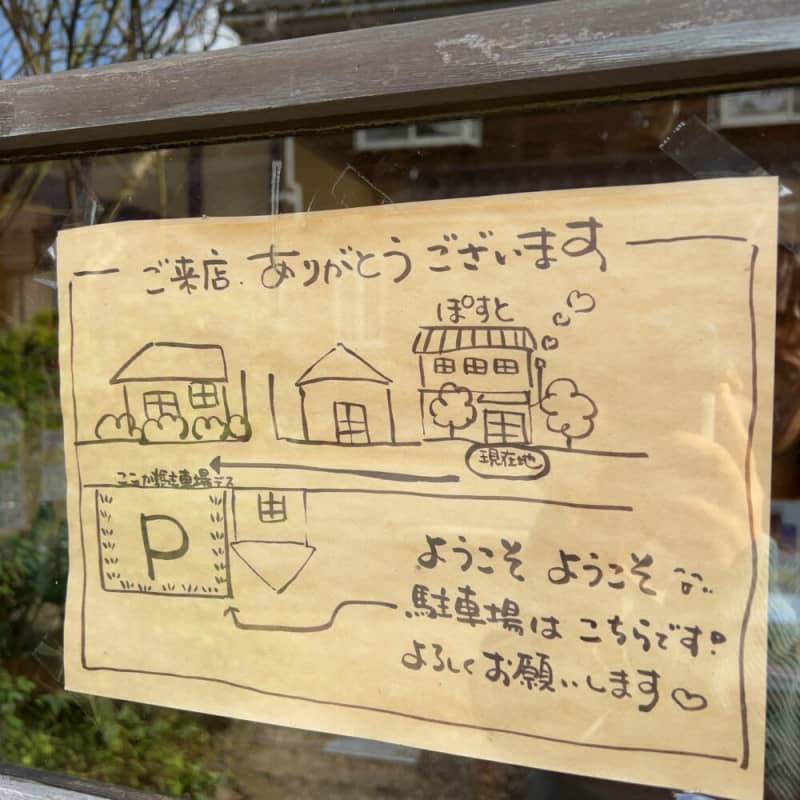 ご来店.ありがとうございます
ぽすと
現在地
ここが駐車場デス
P
ようこそ ようこそ
駐車場は こちらです!
よろしくお願いします♡